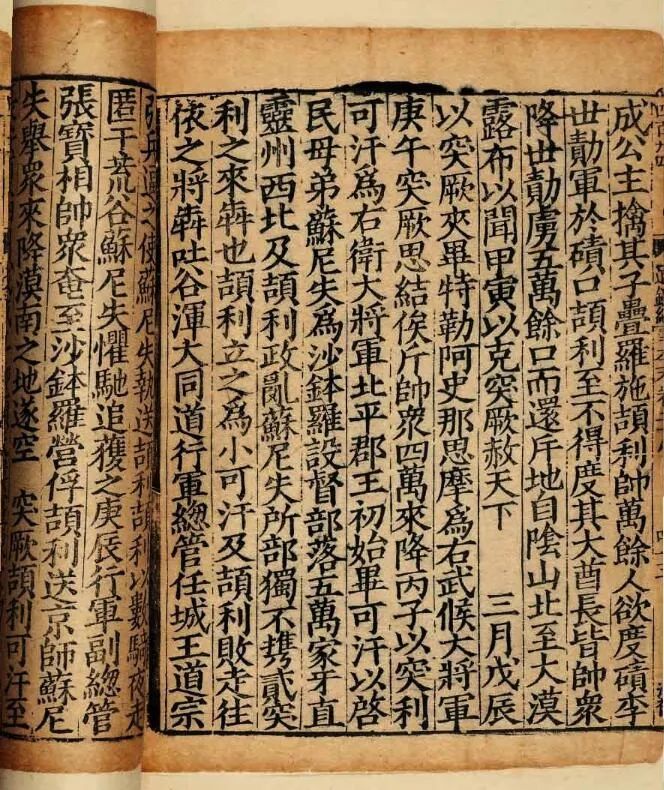 成公主擒其子疊羅施頡利帥萬餘人欲度磧李
世勣軍於磧口頡利至不得度其大酋長皆帥衆
降世勣虜五萬餘口而還斥地自陰山北至大漠
露布以聞甲寅以克突厥赦天下　三月戊辰
以突厥夾畢特勒阿史那思摩爲右武候大將軍
庚午突厥思結俟斤帥衆四萬來降丙子以突利
可汗爲右衛大將軍北平郡王初始畢可汗以啓
民母弟蘇尼失爲沙鉢羅設督部落五萬家牙直
靈州西北及頡利政亂蘇尼失所部獨不擕貳突
利之來奔也頡利立之爲小可汗及頡利敗走往
依之將犇吐谷渾大同道行軍總管任城王道宗
之使蘇尼失執送頡利頡利以數騎夜走
匿于荒谷蘇尼失懼馳追獲之庚辰行軍副總管
張寶相帥衆奄至沙鉢羅營俘頡利送京師蘇尼
失舉衆來降漠南之地遂空　突厥頡利可汗至